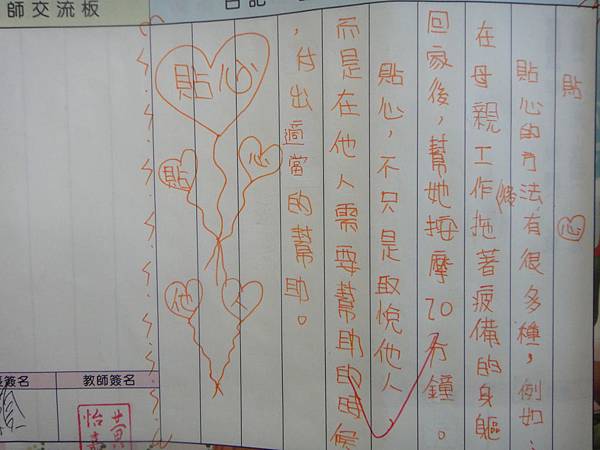 師交流板
貼心
貼心的方法有很多種，例如：
在母親工作拖著疲備的身軀
後
回家後，幫她按摩20分鐘。
貼心，不只是取悅他人，
而是在他人需要幫助的時候
，付出適當的幫助。
貼心
貼
心
他
人
簽名
教師簽名
黃怡嘉